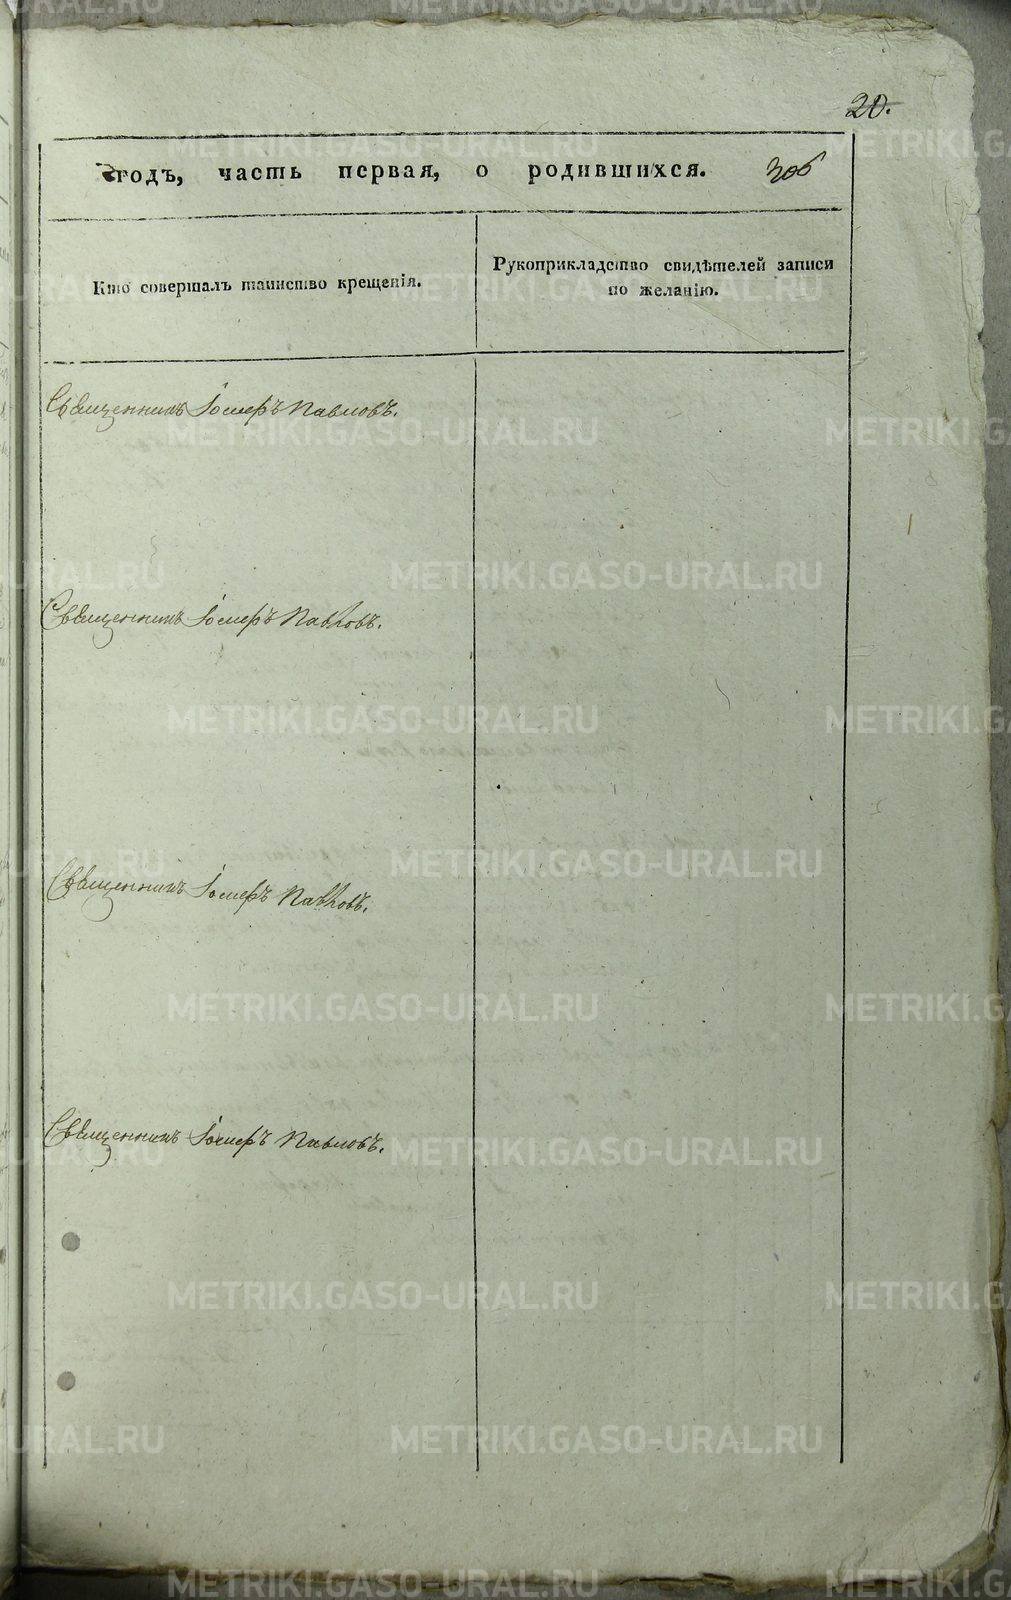 20.
годъ, часть первая, о родившихся. 306
Кто совершалъ таинство крещенія.
Рукоприкладство свидѣтелей записи
по желанію.
Священникъ Іосифъ Павловъ.
Священникъ Іосифъ Павловъ.
Священникъ Іосифъ Павловъ.
Священникъ Іосифъ Павловъ.
METRIKI.GASO-URAL.RU